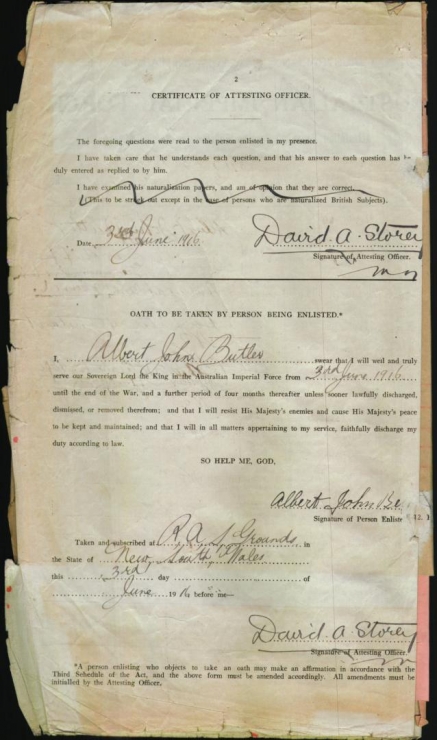 2
CERTIFICATE OF ATTESTING OFFICER.
The foregoing questions were read to the person enlisted in my presence.
I have taken care that he understands each question, and that his answer to each question has be
duly entered as replied to by him.
I have examined his naturalization papers, and am of opinion that they are correct.
(This to be struck out except in the case of persons who are naturalized British Subjects).
Date 3rd June 1916 David A. Storey
Signature of Attesting Officer.
OATH TO BE TAKEN BY PERSON BEING ENLISTED.*
I, Albert John Butler swear that I will well and truly
serve our Sovereign Lord the King in the Australian Imperial Force from 3rd June 1916
until the end of the War, and a further period of four months thereafter unless sooner lawfully discharged,
dismissed, or removed therefrom; and that I will resist His Majesty's enemies and cause His Majesty's peace
to be kept and maintained; and that I will in all matters appertaining to my service, faithfully discharge my
duty according to law.
SO HELP ME, GOD.
Albert John
Signature of Person Enliste
Taken and subscribed at R A S Grounds in
the State of New South Wales
this 3rd day of
June 1916 before me—
David A. Storey
Signature of Attesting Officer.
*A person enlisting who objects to take an oath may make an affirmation in accordance with the
Third Schedule of the Act, and the above form must be amended accordingly. All amendments must be
initialled by the Attesting Officer.